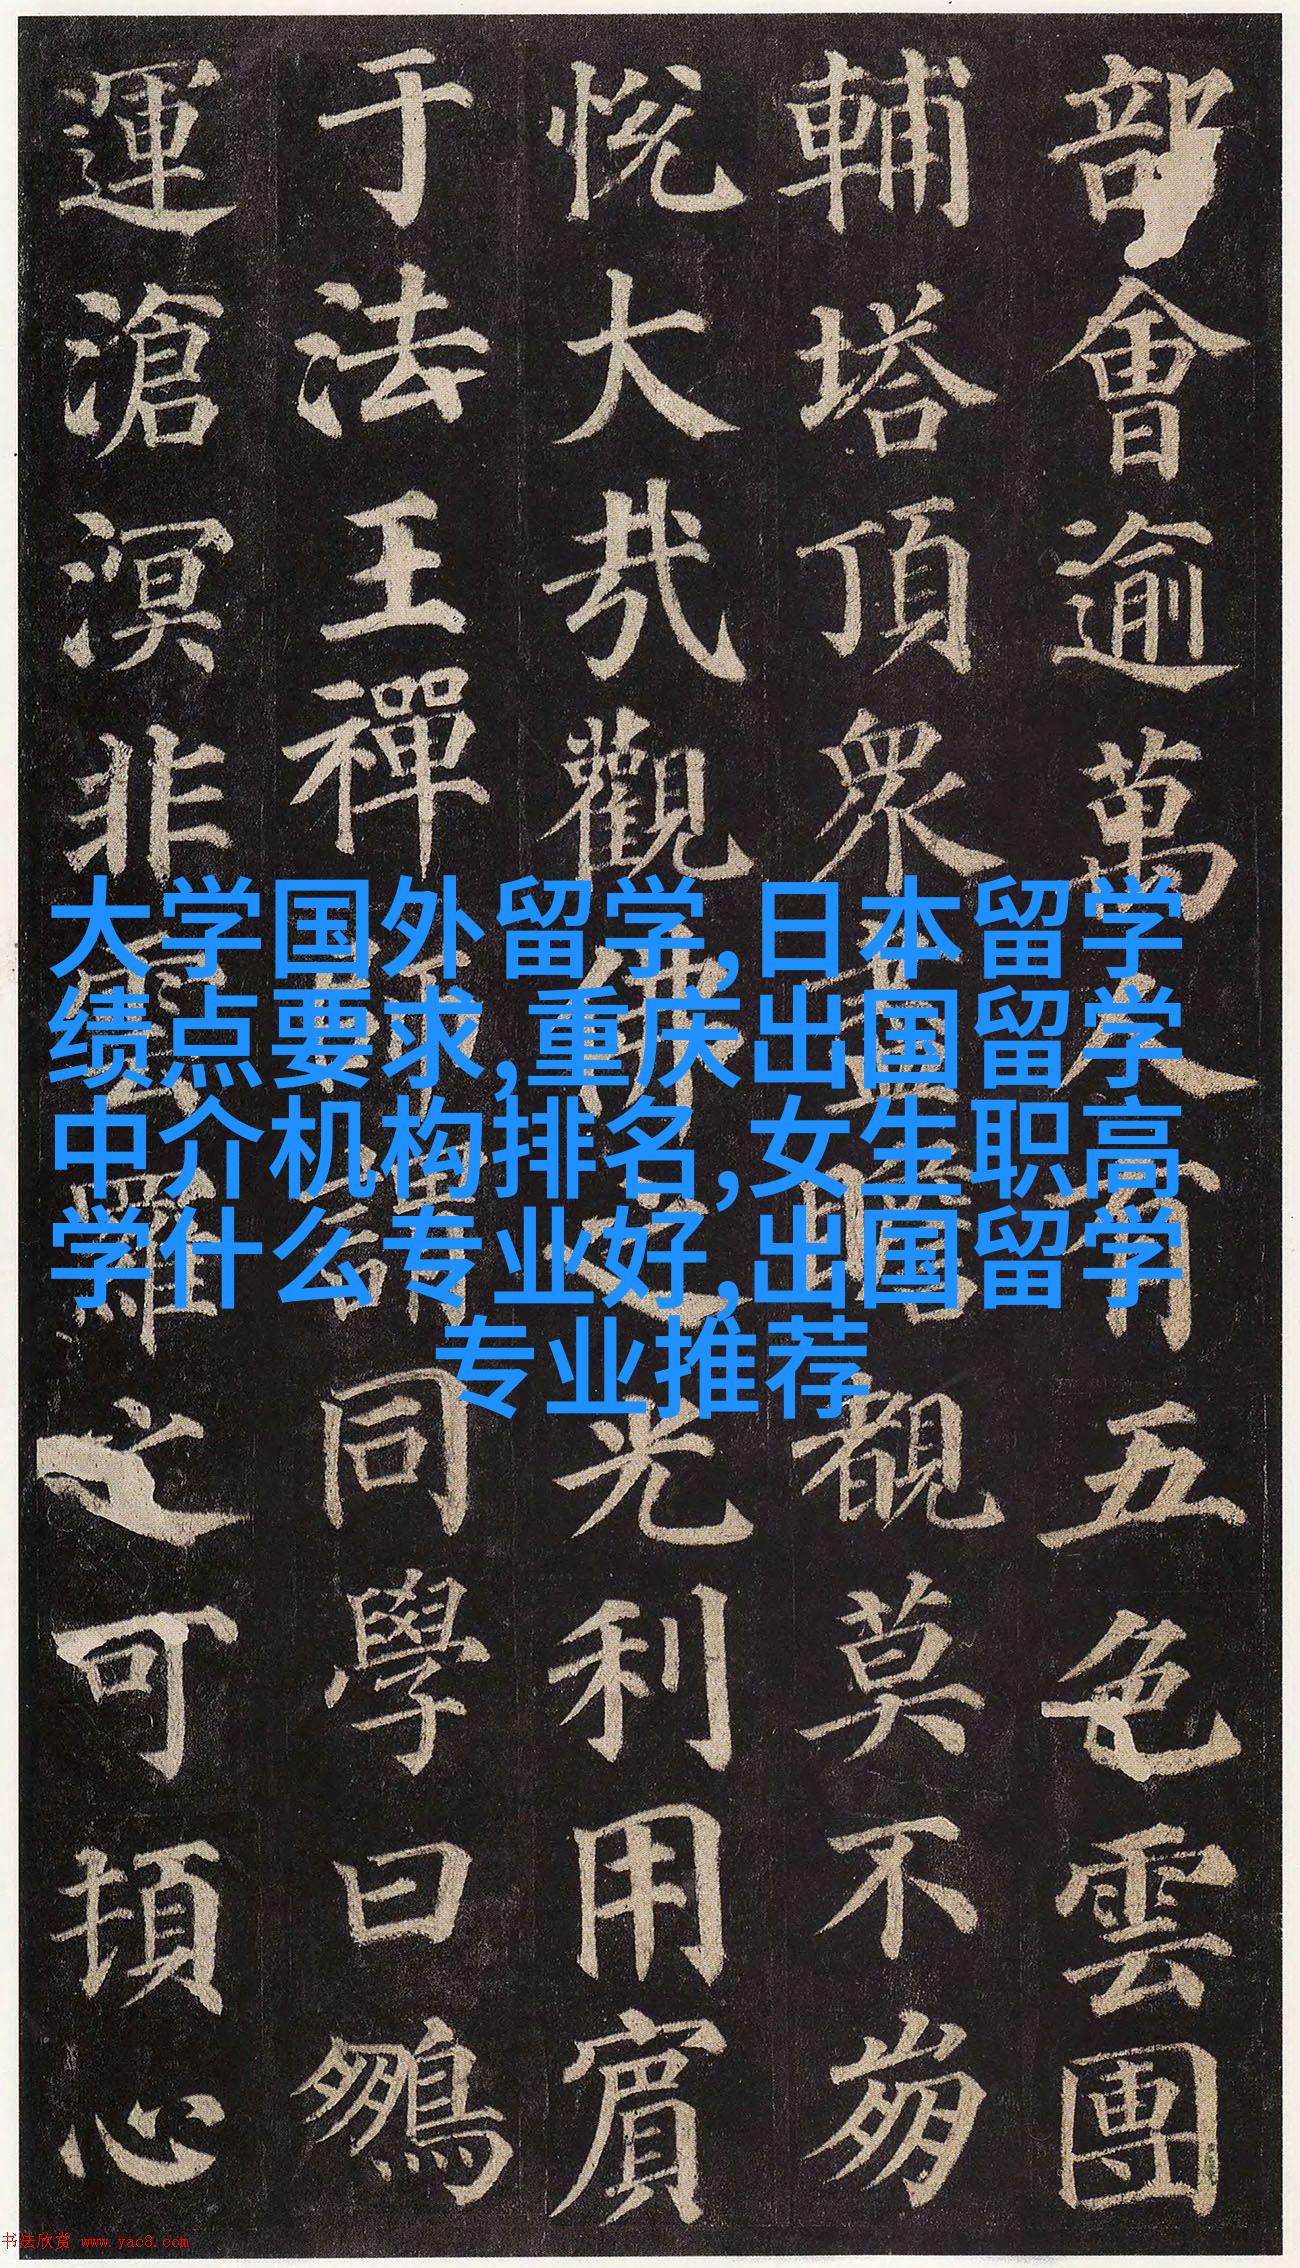 部會逾萬人有五色雲團
輔塔頂衆盡瞻覩莫不崩
悅大哉觀佛之光利用賓
于法王禪師謂同學曰鵬
運滄溟非雲羅之可頓心
大学国外留学,日本留学
绩点要求,重庆出国留学
中介机构排名,女生职高
学什么专业好,出国留学
专业推荐
书法欣赏 www.yac8.com